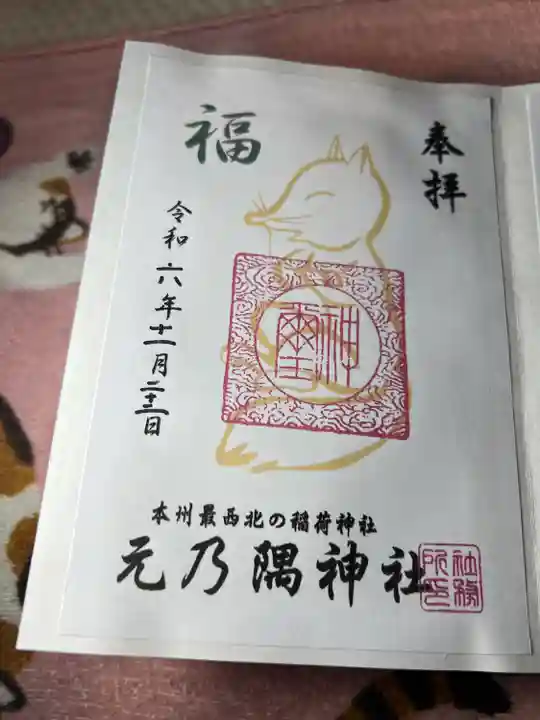 奉拝
福
令和六年十一月二十二日
神璽
本州最西北の稲荷神社
元乃隅神社
社務所印